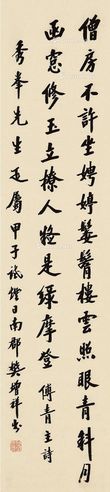 僧房不許坐娉婷鬟髻樓雲照眼青斜月
函窓修玉立橑人將是綠摩登 傅青主詩
秀峯先生正屬 甲子試燈日南郡樊增祥書